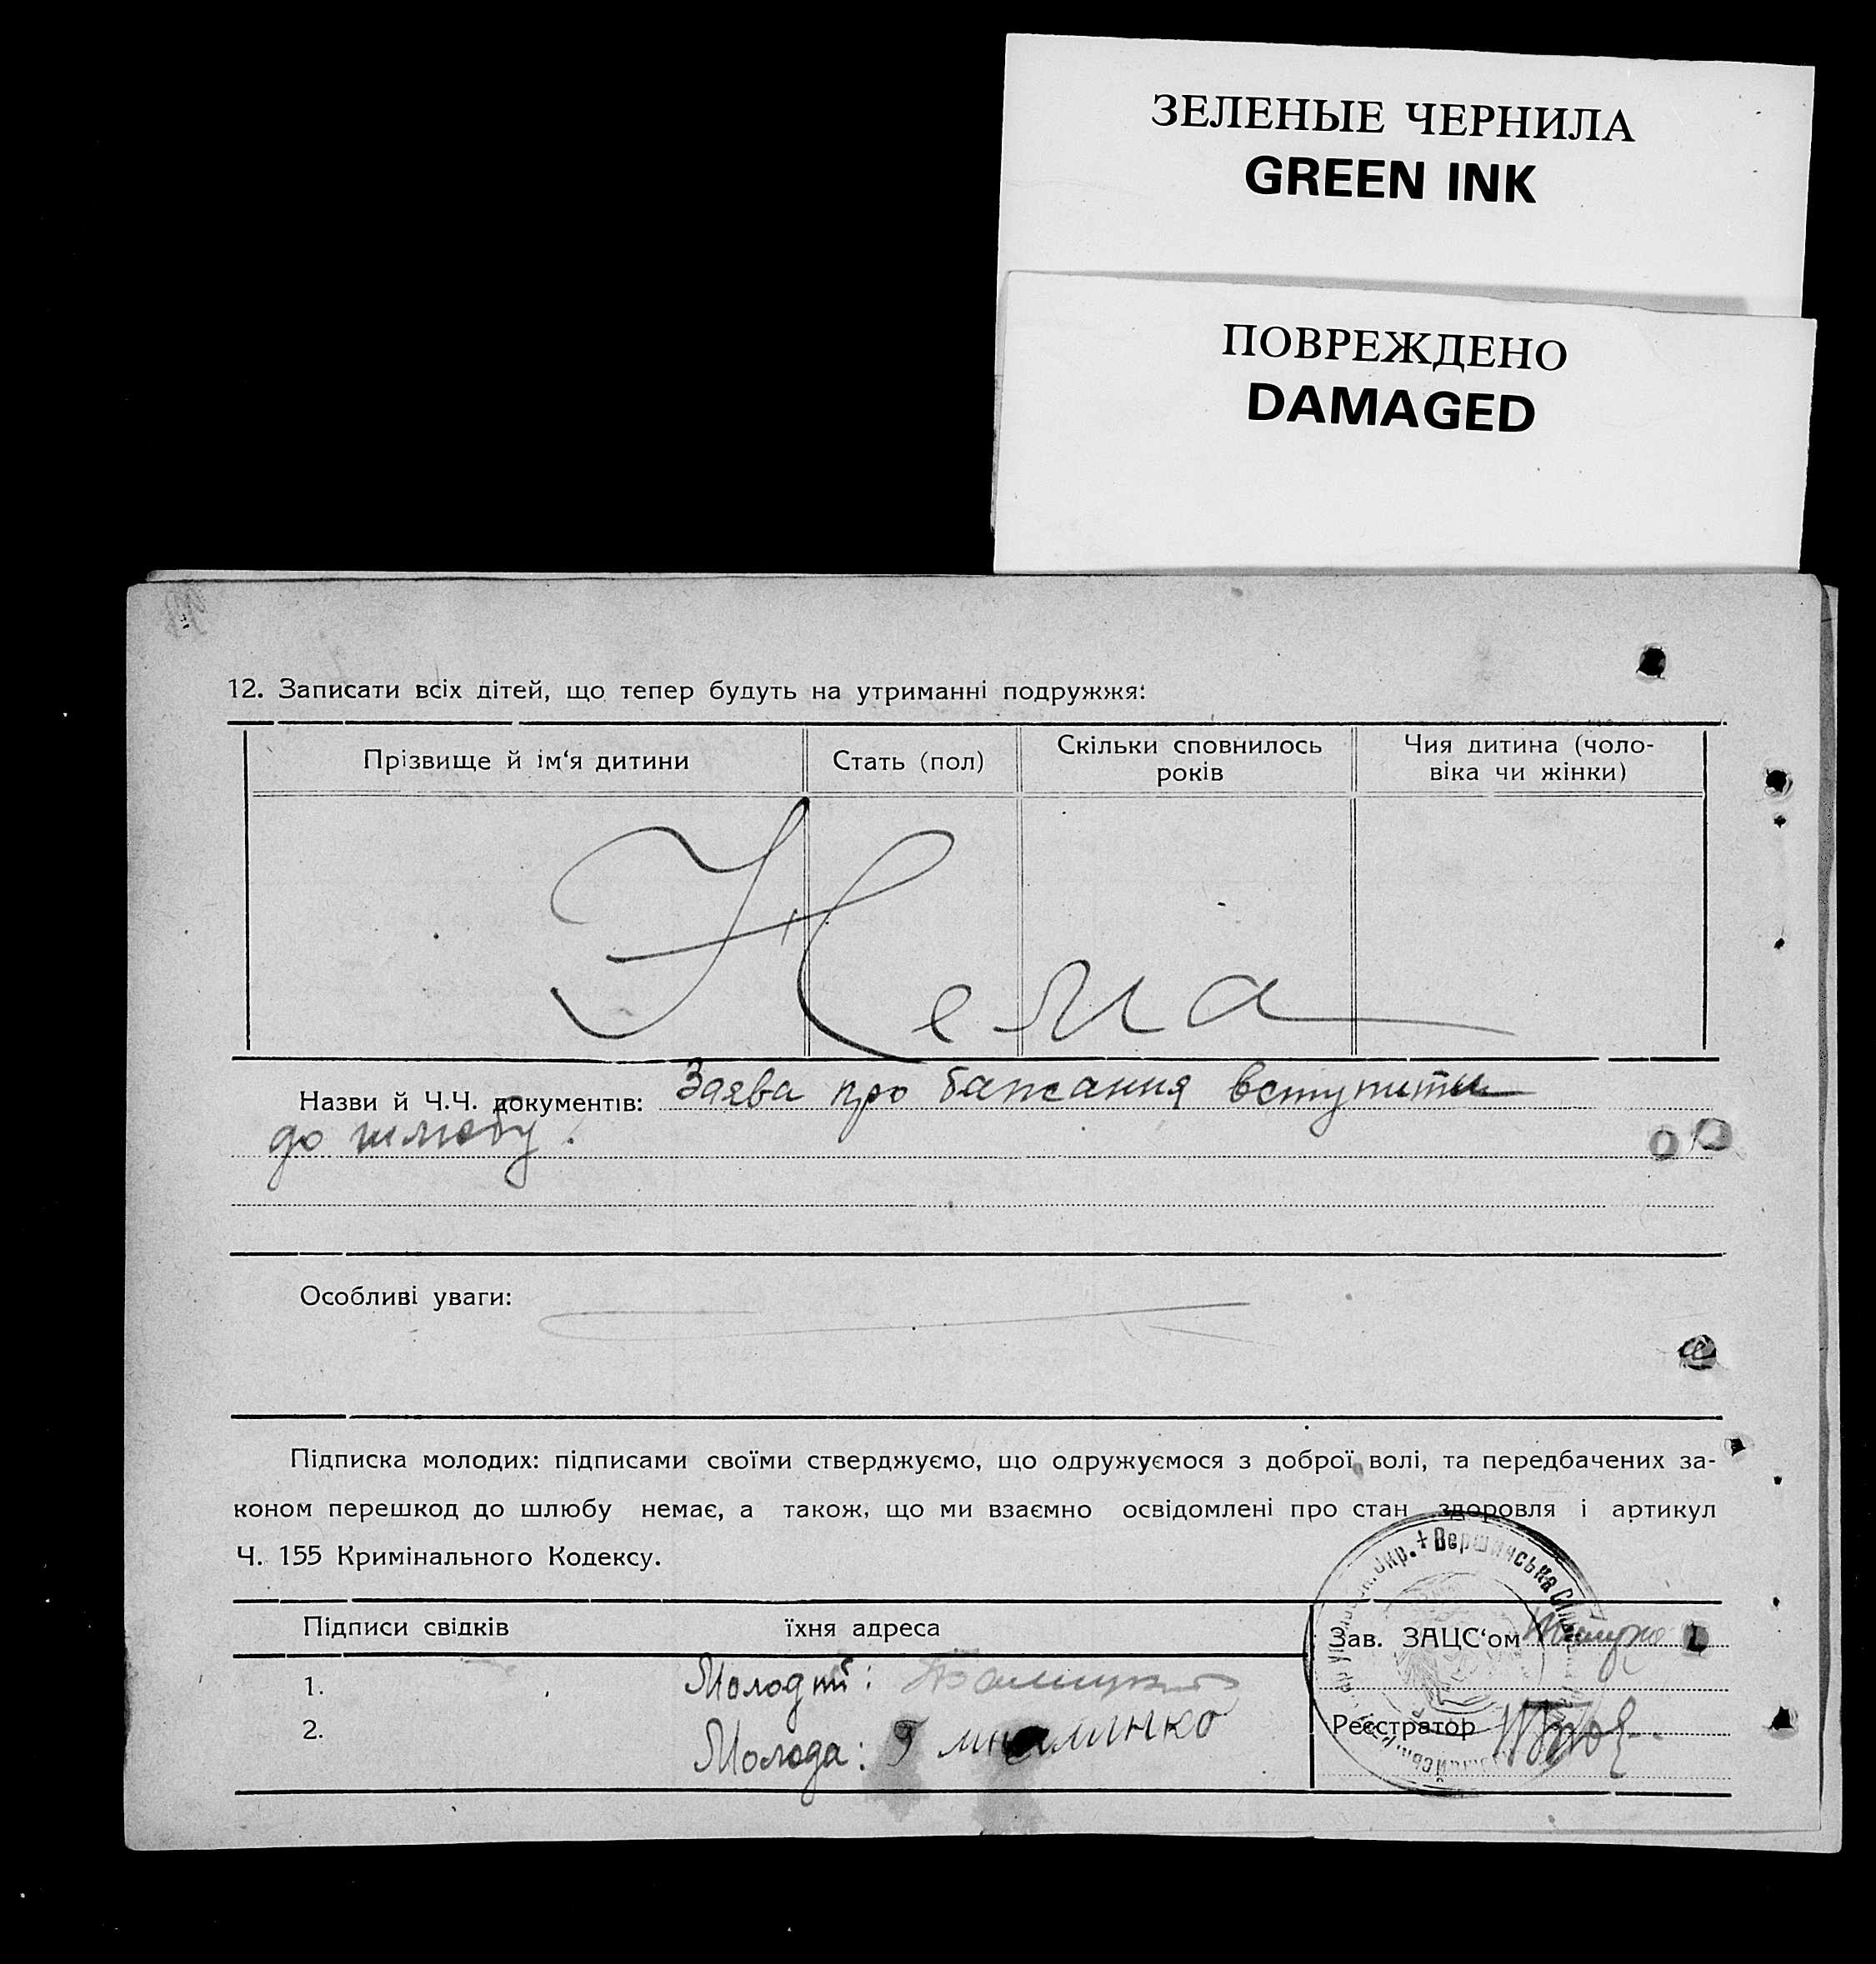 ЗЕЛЕНЫЕ ЧЕРНИЛА
GREEN INK
ПОВРЕЖДЕНО
DAMAGED
12. Записати всіх дітей, що тепер будуть на утриманні подружжя:
Прізвище й ім‘я дитини
Стать (пол)
Скільки сповнилось
років
Чия дитина (чоло-
віка чи жінки)
Нема
Назви й Ч.Ч. документів: Заява про бажання вступити
до шлюбу.
Особливі уваги:
Підписка молодих: підписами своїми стверджуємо, що одружуємося з доброї волі, та передбачених за-
коном перешкод до шлюбу немає, а також, що ми взаємно освідомлені про стан здоровля і артикул
Ч. 155 Кримінального Кодексу.
Підписи свідків
їхня адреса
1.
2.
Молодий:
Молода:
Зав. ЗАЦС‘ом
Реєстратор
Окр. + Вершинська